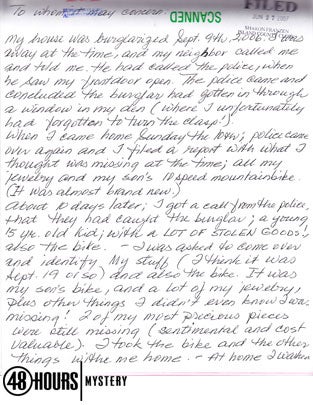 To whom it may concern.
SCANNED
FILED
JUN 27 2007
SHARON FRANZEN
ISLAND COUNTY CLERK
My house was burglarized Sept. 9th, 2006. I was
away at the time, and my neighbor called me
and told me. He had called the police, when
he saw my frontdoor open. The police came and
concluded the burglar had gotten in through
a window in my den (where I unfortunately
had forgotten to turn the clasp!).
When I came home Sunday the 10th, police came
over again and I filed a report with what I
thought was missing at the time; all my
jewelry and my son's 10 speed mountainbike.
(It was almost brand new.)
About 10 days later, I got a call from the police,
that they had caught the burglar; a young
15 yr. old kid; with A LOT OF STOLEN GOODS!
also the bike. - I was asked to come over
and identify My stuff (I think it was
Sept. 19 or so) and also the bike. It was
my son's bike, and a lot of my jewelry,
plus other things I didn't even know I was
missing! 2 of my most precious pieces
were still missing (sentimental and cost
valuable). I took the bike and the other
things with me home. - At home I
48 HOURS MYSTERY